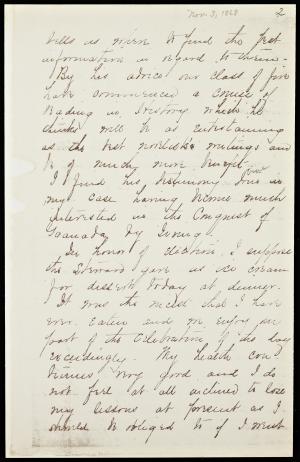 Nov. 3, 1868
2
tells us where to find the best
information in regard to them.
By his advice our class of five
have commenced a course of
Reading in History which he
thinks will be as entertaining
as the best novelists writings and
be of much more benefit.
I find his testimony true in
my case having become much
interested in the Conquest of
Granada by Irving.
In honor of election, I suppose
the Steward gave us ice cream
for dessert today at dinner.
It was the nicest that I have
ever eaten and we enjoy our
part of the celebration of the day
exceedingly. My health con-
tinues very good and I do
not feel at all inclined to lose
my lessons at present as I
should be obliged to if I went